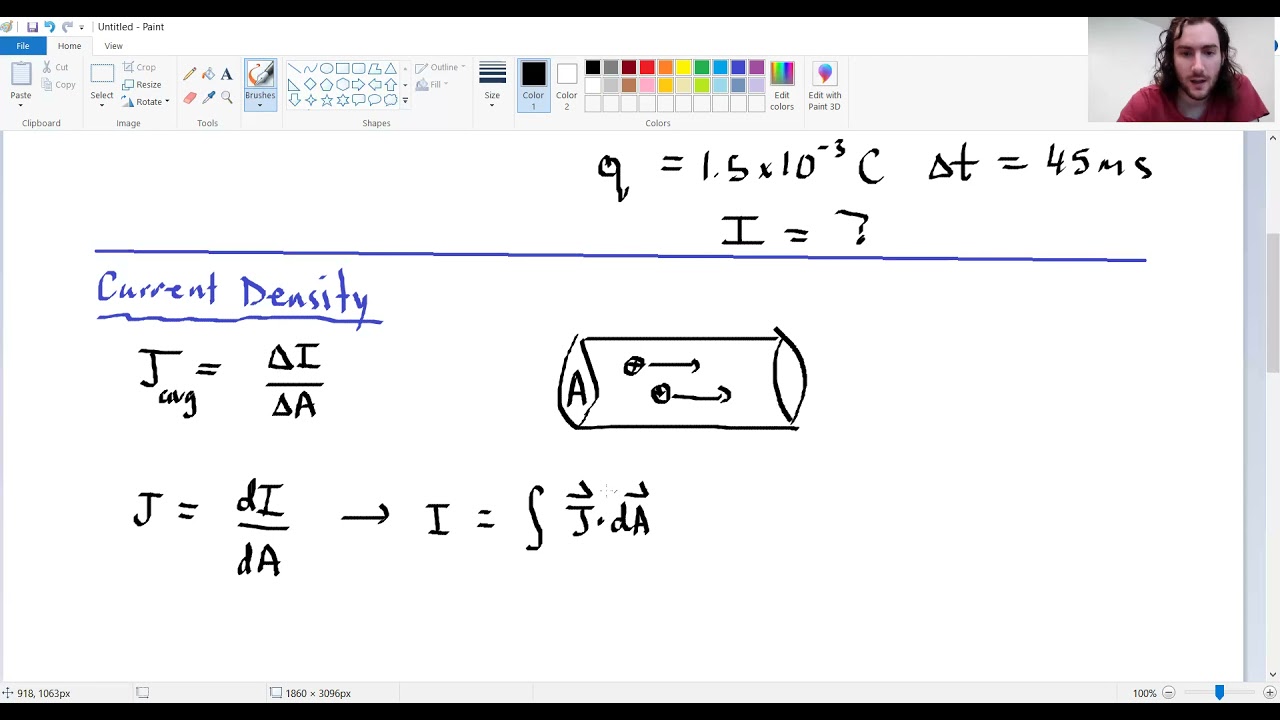 Untitled - Paint
File Home View
Paste Cut Copy Clipboard
Select Crop Resize Rotate Image
Tools
Brushes
Shapes Outline Fill
Size
Color 1 Color 2 Colors
Edit colors
Edit with Paint 3D
q = 1.5×10⁻³ C Δt = 45ms
I = ?
Current Density
J avg = ΔI / ΔA
A
J = dI / dA → I = ∫ J⃗ · dA⃗
918, 1063px 1860 × 3096px 100%